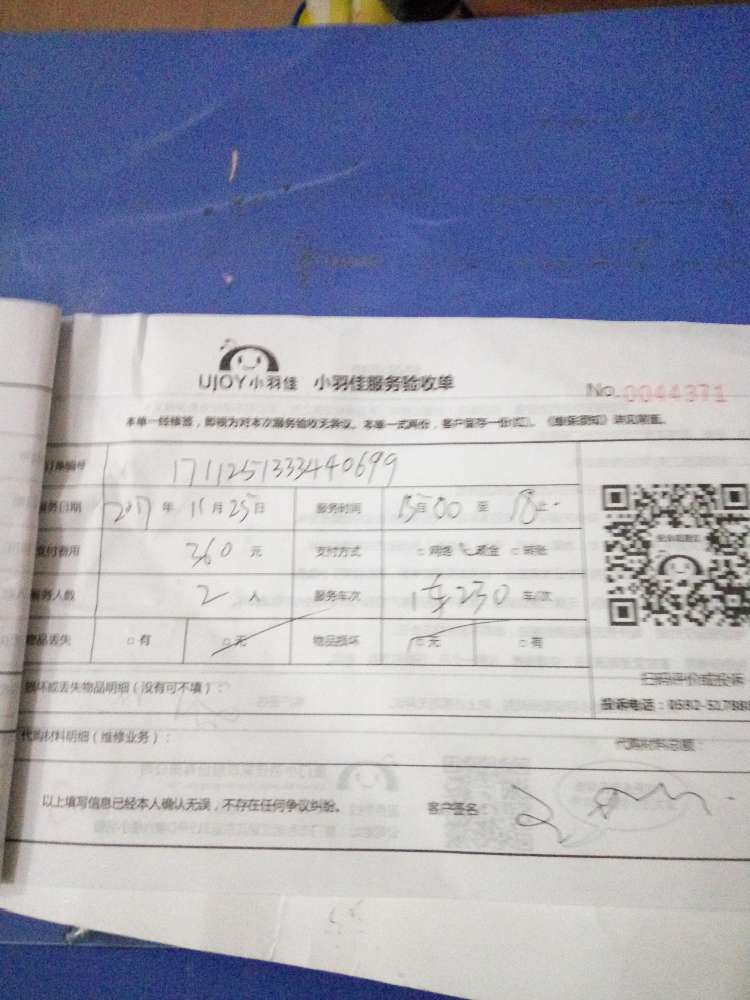 UJOY小羽佳 小羽佳服务验收单
No.0044371
本单一经修签，即视为对本次服务验收无异议。本单一式两份，客户留存一份(红)。
订单编号 1711251333440699
服务日期 2017年 11月 25日 服务时间 15:00 至 18止
支付费用 360 元 支付方式 □网络 □现金 □转账
服务人数 2 人 服务车次 1车230 车/次
物品丢失 □有 □无 物品损坏 □无 □有
损坏或丢失物品明细（没有可不填）：
扫码评价或投诉
投诉电话：0592-51788
代购材料明细（维修业务）：
代购材料总额：
以上填写信息已经本人确认无误，不存在任何争议纠纷。 客户签名